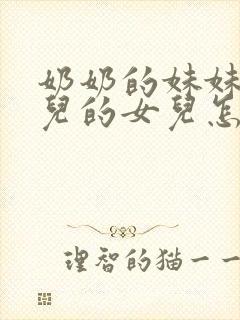 奶奶的妹妹
兒的女兒怎
理智的猫一一